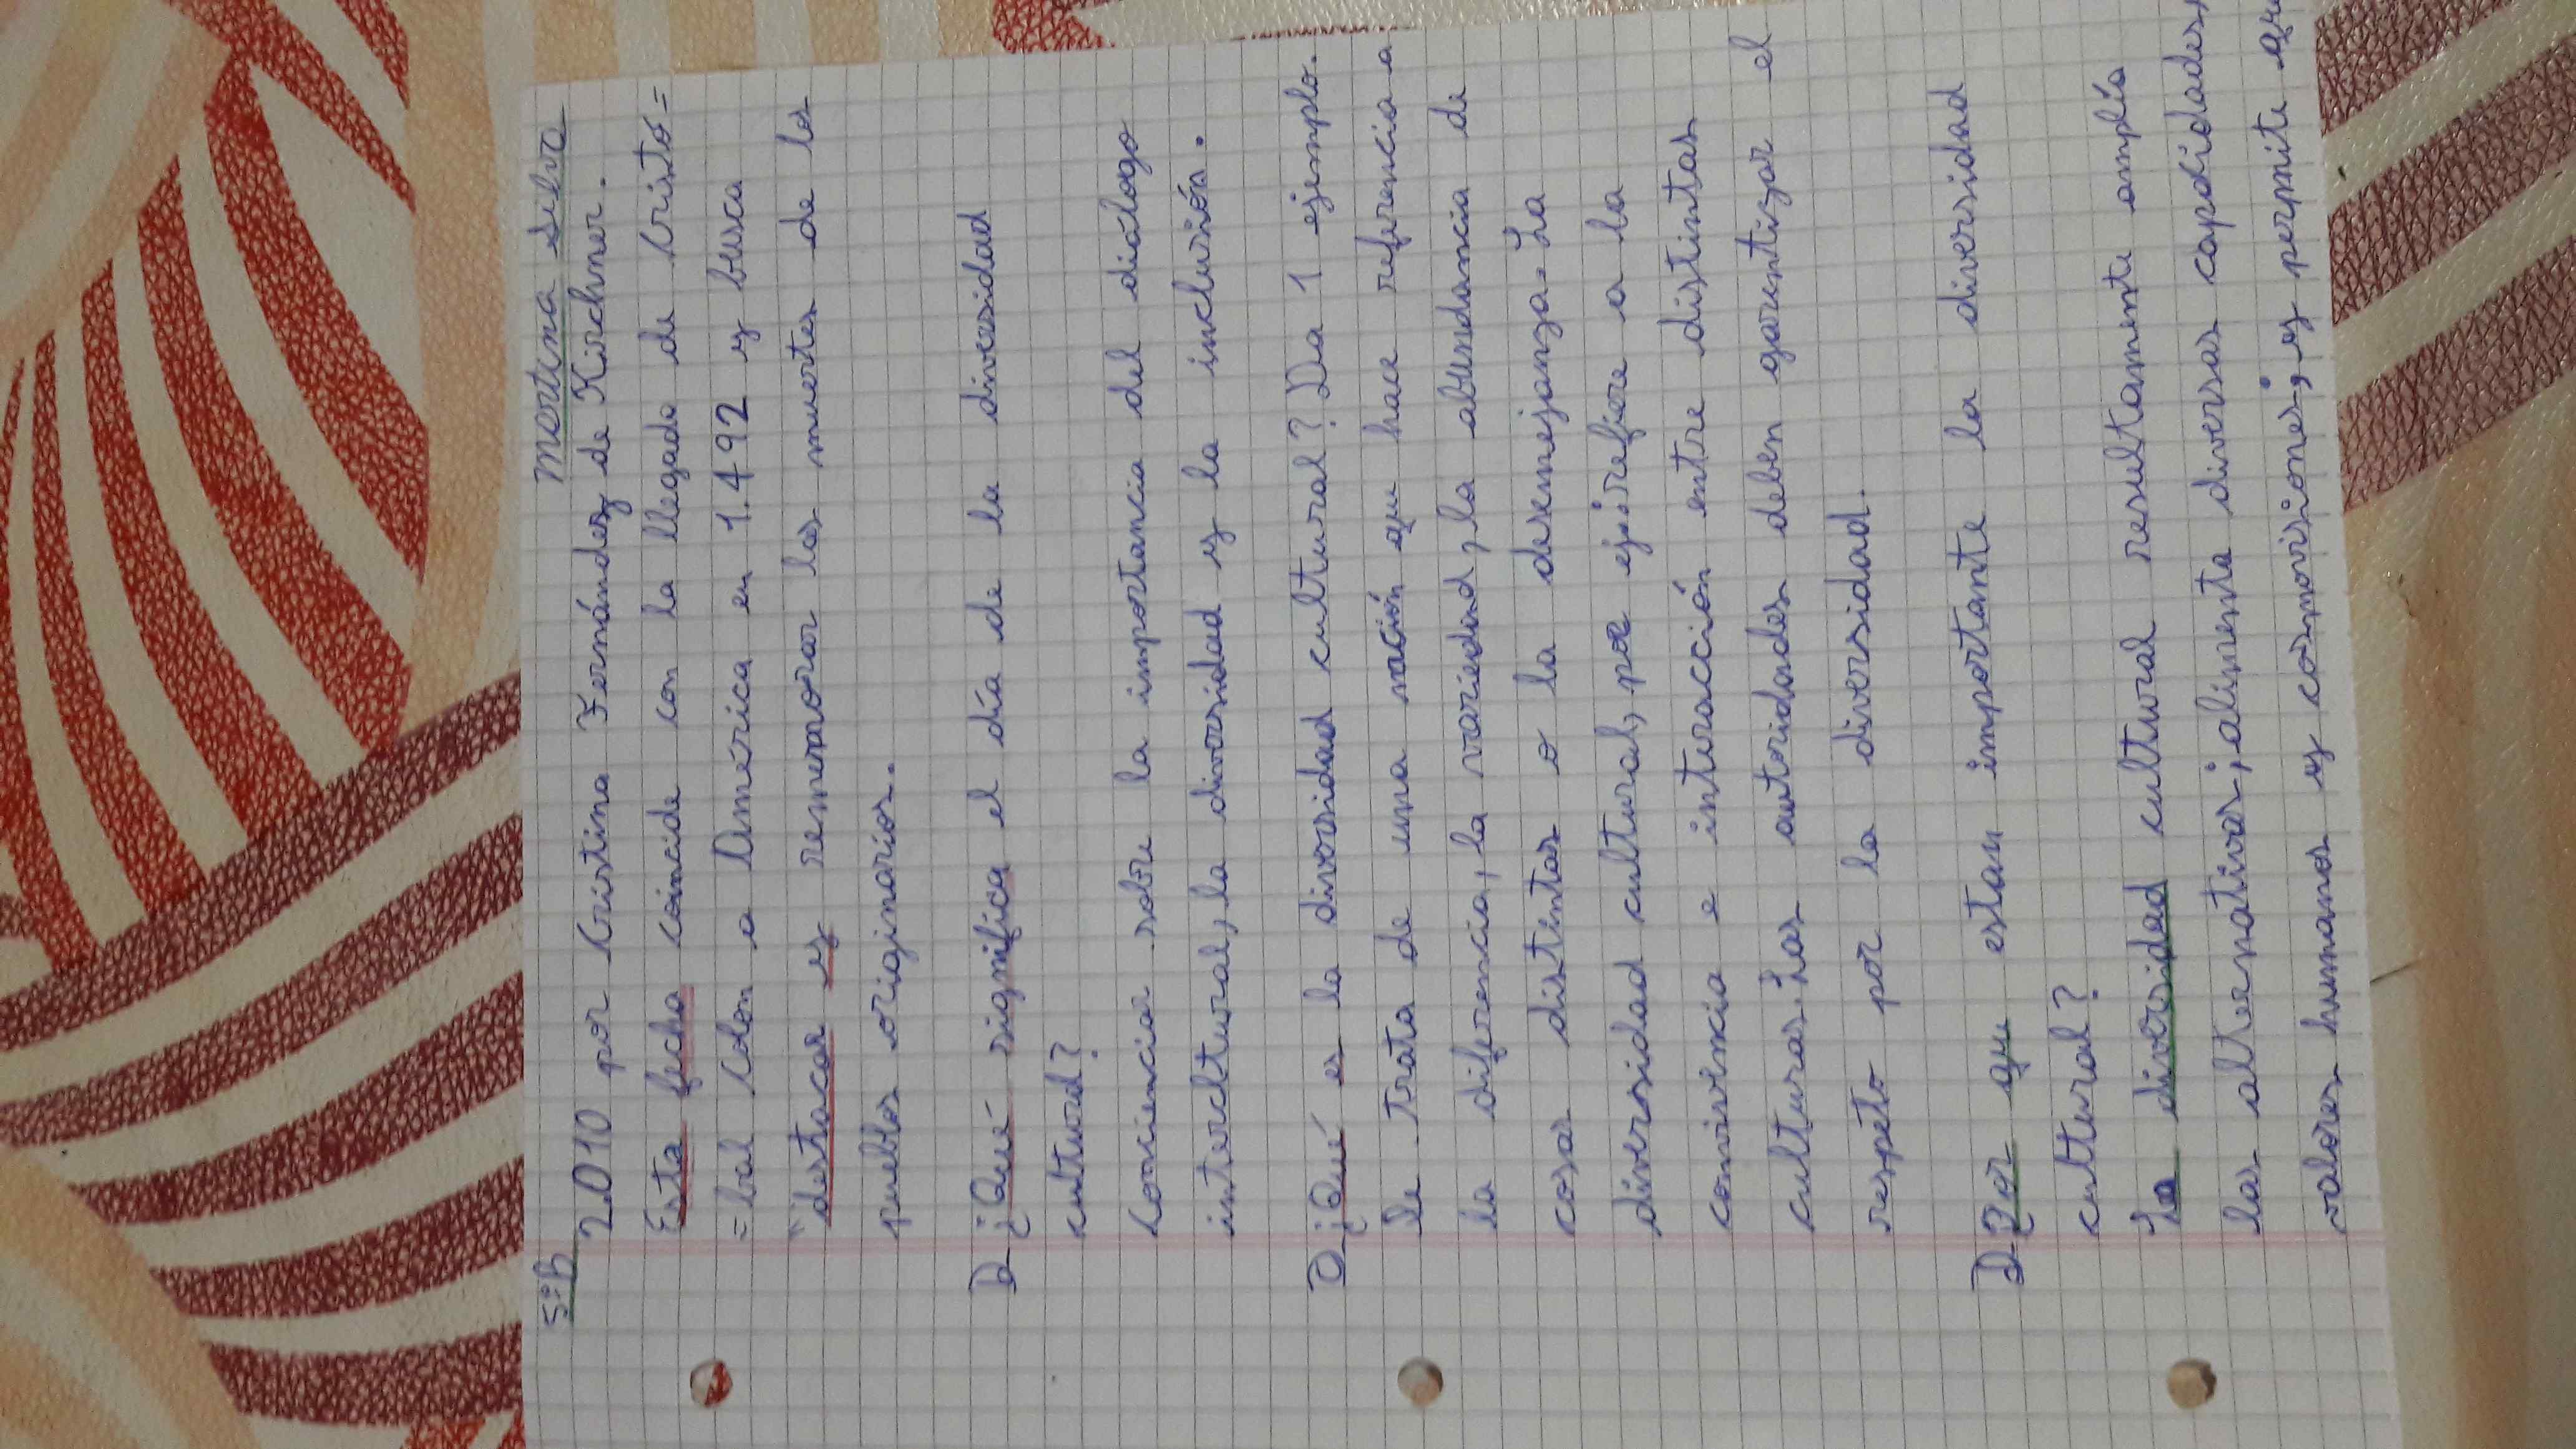 5°B Martina Silva
2.010 por Cristina Fernández de Kirchner.
Esta fecha coincide con la llegada de Cristo=
=bal Colon a América en 1.492 y busca
"destacar y rememorar las muertes de los
pueblos originarios.
¿Qué significa el día de la diversidad
cultural?
Conciencia sobre la importancia del diálogo
intercltural, la diversidad y la inclusión.
¿Qué es la diversidad cultural? Da 1 ejemplo.
Se trata de una noción que hace referencia a
la diferencia, la variedad, la abundancia de
cosas distintas o la desemejanza. La
diversidad cultural, por ej: refiere a la
convivencia e interacción entre distintas
culturas. Las autoridades deben garantizar el
respeto por la diversidad.
¿Por que estan importante la diversidad
cultural?
La diversidad cultural resultamente amplía
las alteenativas; alimenta diversas capacidades,
valores humanos y cosmovisiones; y permite que